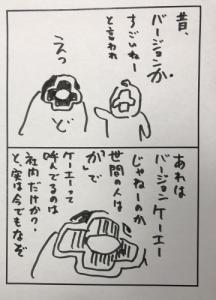 昔、
バージョンが
すごいねー
と言われ
えっ
ど
あれは
バージョンケーエー
じゃねーのか
世間の人は
「か」で
ケーエーって
呼んでるのは
社内だけか？
と、実は今でもなぞ